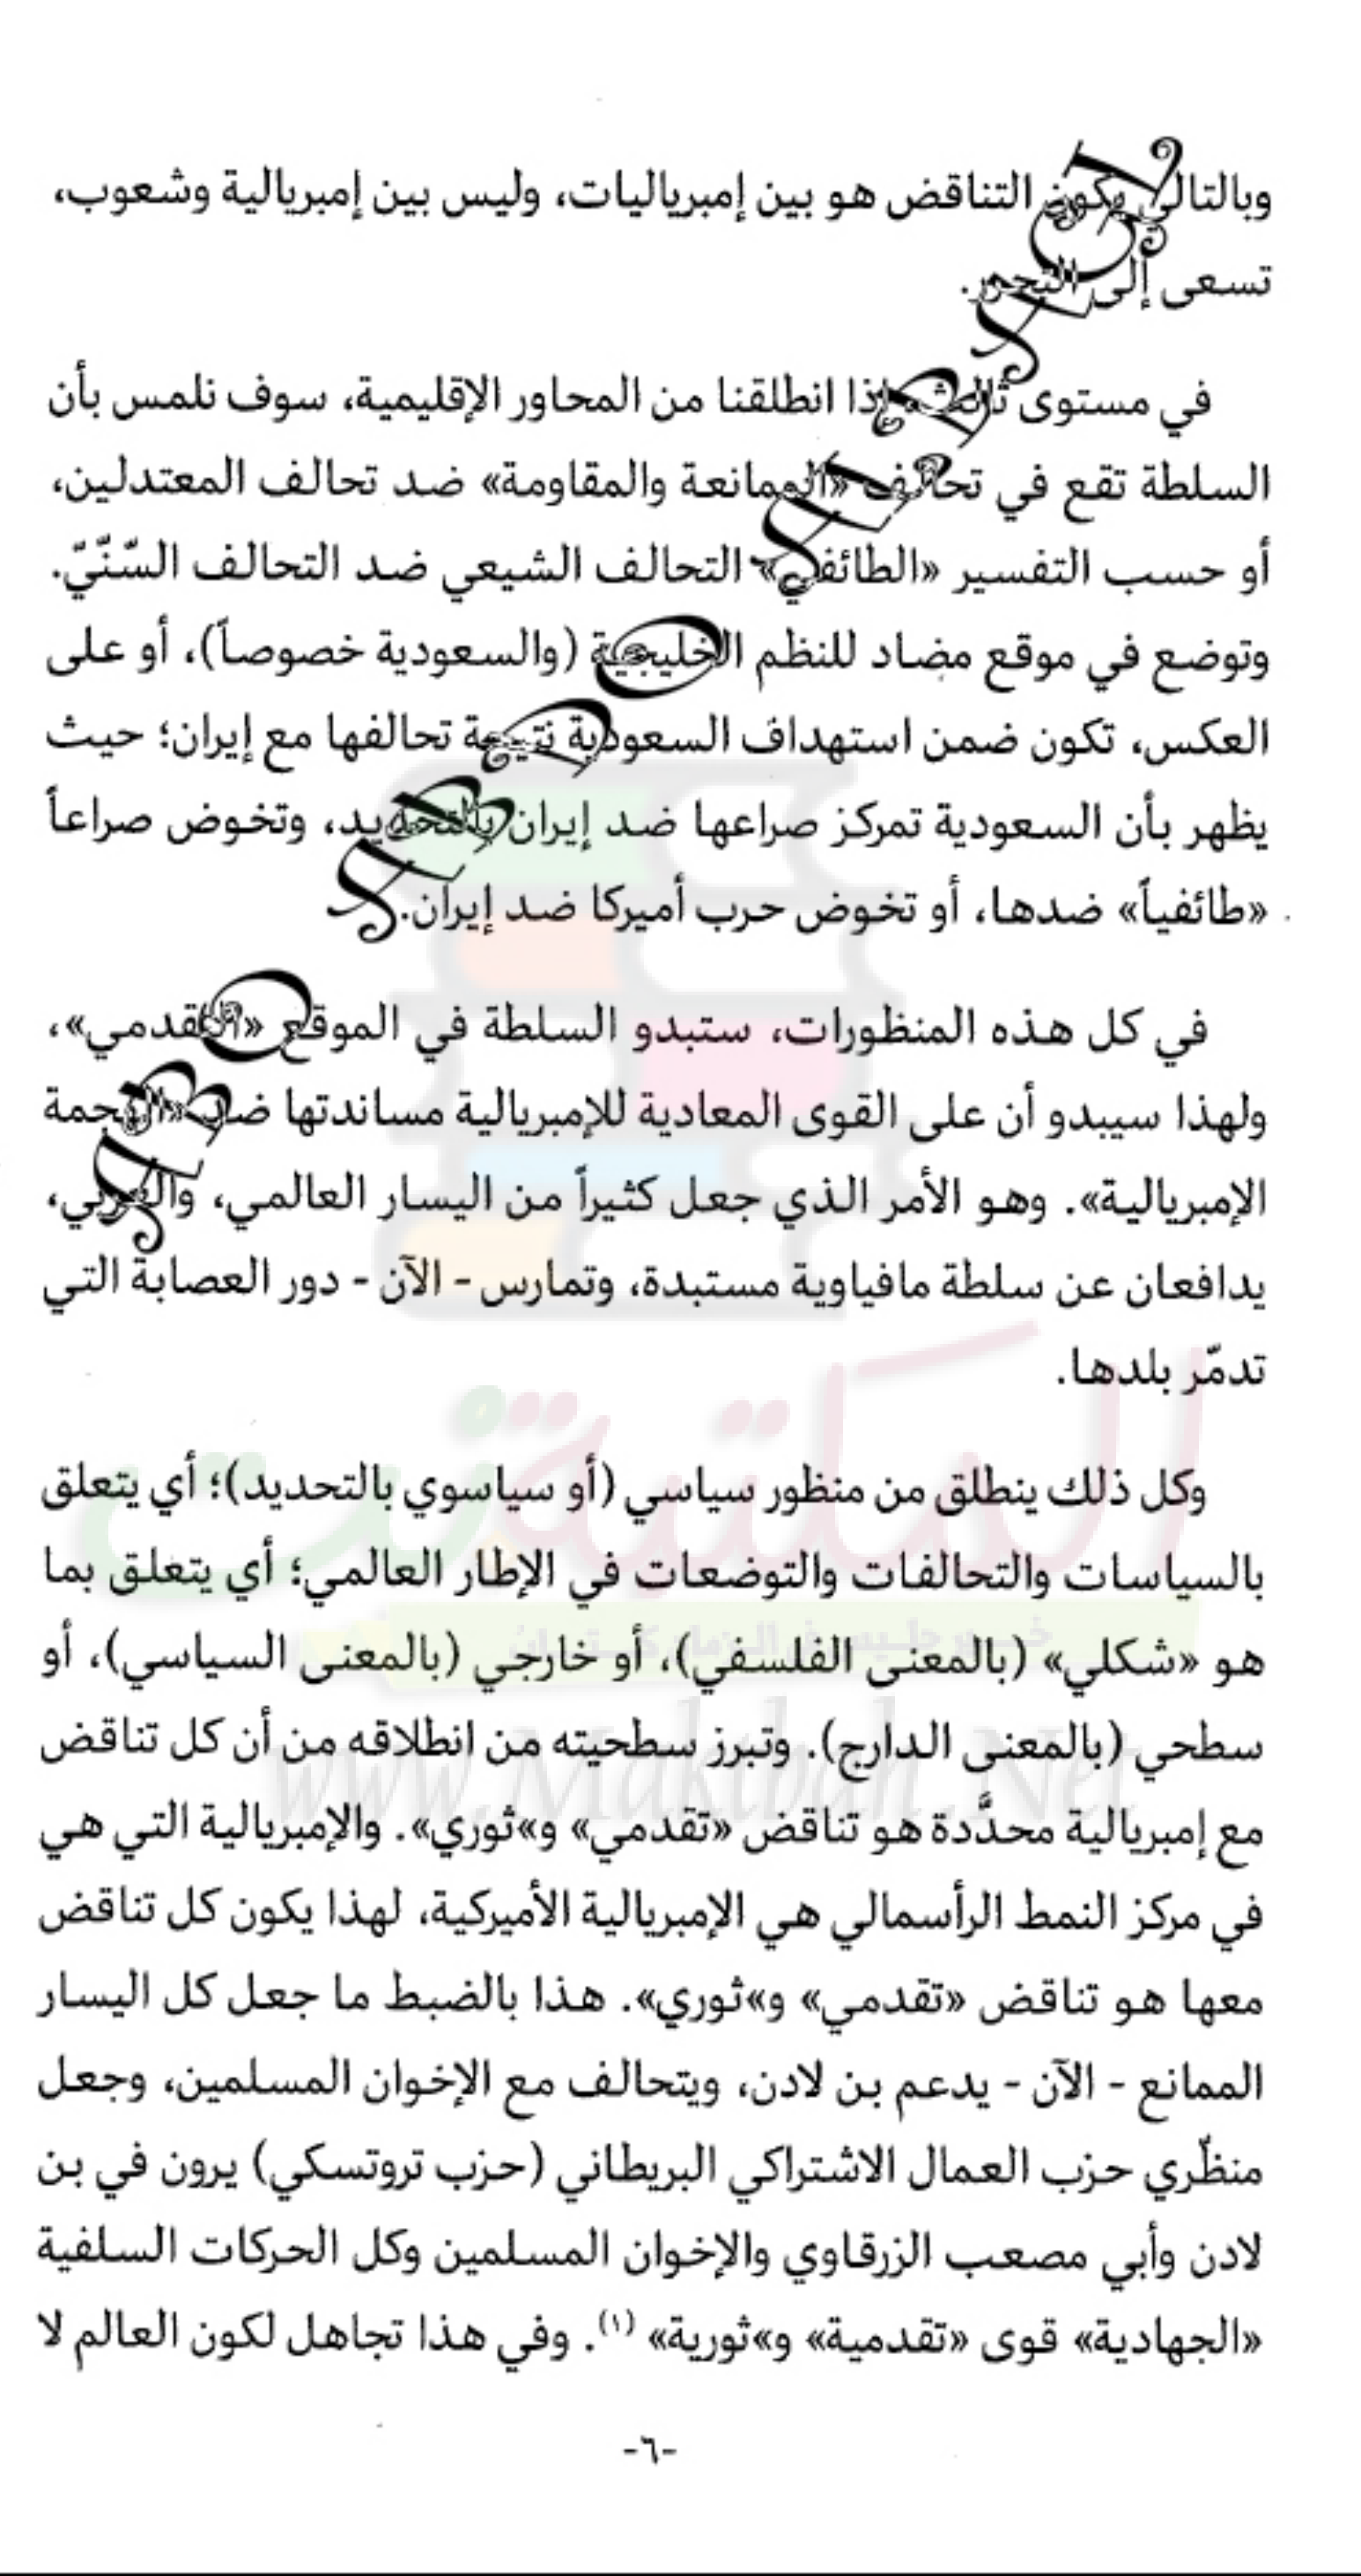 وبالتالي يكون التناقض هو بين إمبرياليات، وليس بين إمبريالية وشعوب،
تسعى إلى التحرر.
في مستوى ثالث، إذا انطلقنا من المحاور الإقليمية، سوف نلمس بأن
السلطة تقع في تحالف «الممانعة والمقاومة» ضد تحالف المعتدلين،
أو حسب التفسير «الطائفي» التحالف الشيعي ضد التحالف السّنّيّ.
وتوضع في موقع مضاد للنظم الخليجية (والسعودية خصوصاً)، أو على
العكس، تكون ضمن استهداف السعودية نتيجة تحالفها مع إيران؛ حيث
يظهر بأن السعودية تمركز صراعها ضد إيران بالتحديد، وتخوض صراعاً
«طائفياً» ضدها، أو تخوض حرب أميركا ضد إيران.
في كل هذه المنظورات، ستبدو السلطة في الموقع «التقدمي»،
ولهذا سيبدو أن على القوى المعادية للإمبريالية مساندتها ضد «الهجمة
الإمبريالية». وهو الأمر الذي جعل كثيراً من اليسار العالمي، والعربي،
يدافعان عن سلطة مافياوية مستبدة، وتمارس - الآن - دور العصابة التي
تدمّر بلدها.
وكل ذلك ينطلق من منظور سياسي (أو سياسوي بالتحديد)؛ أي يتعلق
بالسياسات والتحالفات والتوضعات في الإطار العالمي؛ أي يتعلق بما
هو «شكلي» (بالمعنى الفلسفي)، أو خارجي (بالمعنى السياسي)، أو
سطحي (بالمعنى الدارج). وتبرز سطحيته من انطلاقه من أن كل تناقض
مع إمبريالية محدَّدة هو تناقض «تقدمي» و»ثوري». والإمبريالية التي هي
في مركز النمط الرأسمالي هي الإمبريالية الأميركية، لهذا يكون كل تناقض
معها هو تناقض «تقدمي» و»ثوري». هذا بالضبط ما جعل كل اليسار
الممانع - الآن - يدعم بن لادن، ويتحالف مع الإخوان المسلمين، وجعل
منظّري حزب العمال الاشتراكي البريطاني (حزب تروتسكي) يرون في بن
لادن وأبي مصعب الزرقاوي والإخوان المسلمين وكل الحركات السلفية
«الجهادية» قوى «تقدمية» و»ثورية» (١). وفي هذا تجاهل لكون العالم لا
-٦-
المكتبة نت
www.Maktbah.Net